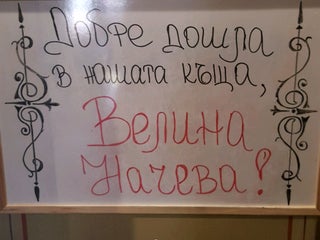 Добре дошла
в нашата къща,
Велина
Начева!